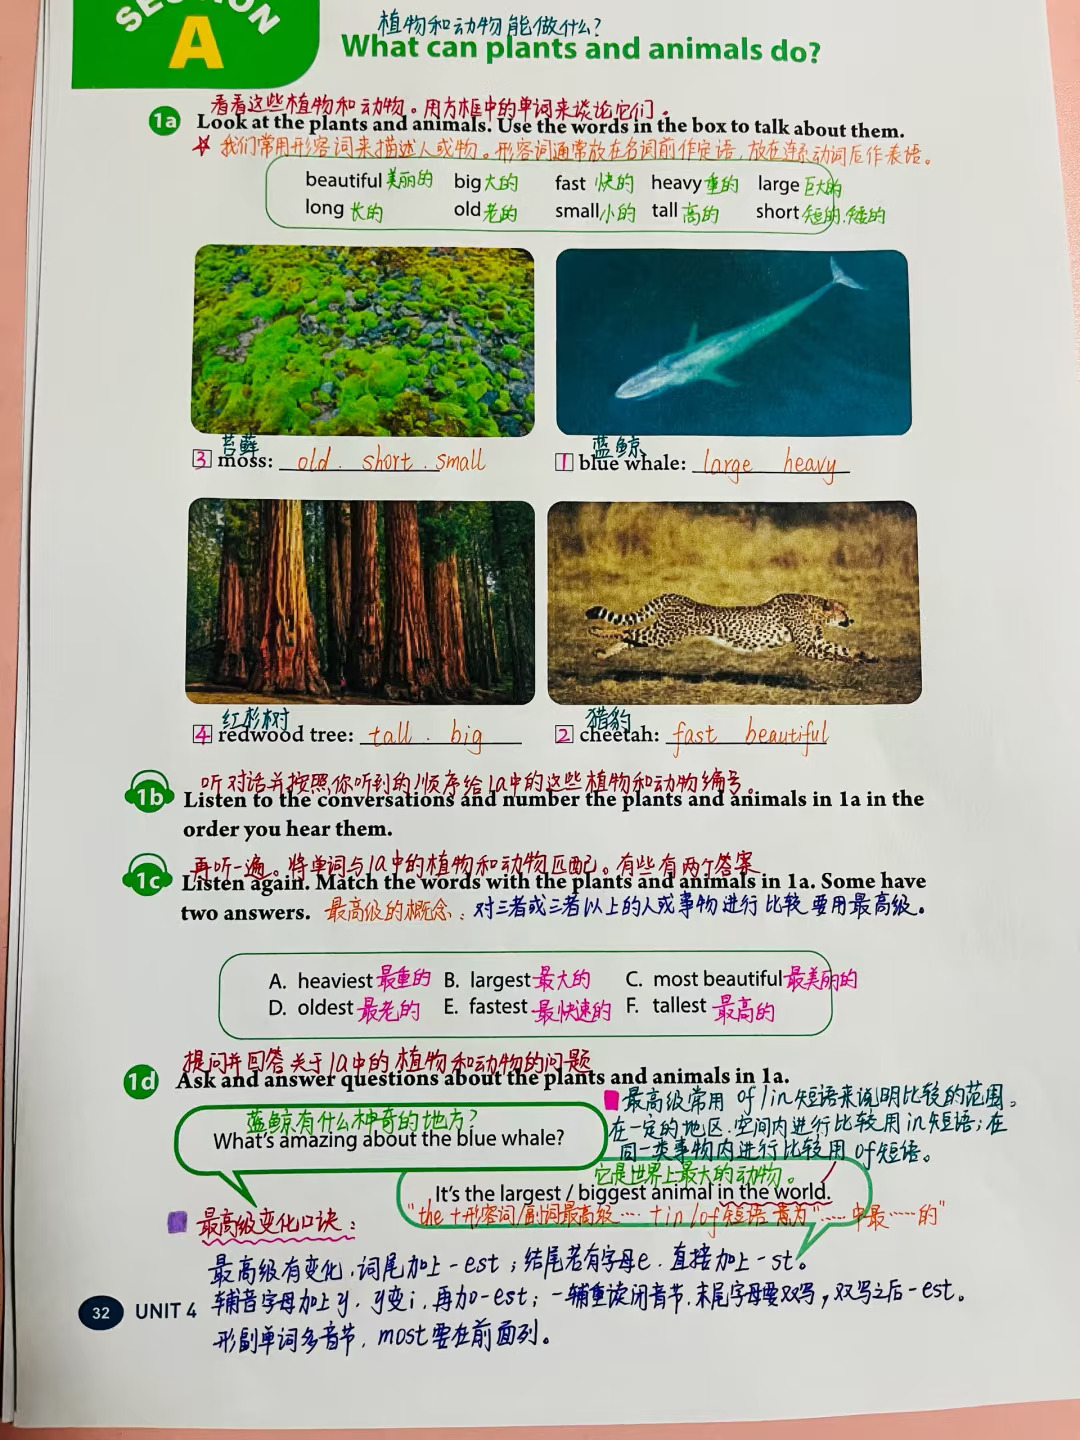 SECTION
A
植物和动物能做什么?
What can plants and animals do?
看看这些植物和动物。用方框中的单词来谈论它们。
1a Look at the plants and animals. Use the words in the box to talk about them.
☆ 我们常用形容词来描述人或物。形容词通常放在名词前作定语,放在连系动词后作表语。
beautiful 美丽的 big 大的 fast 快的 heavy 重的 large 巨大的
long 长的 old 老的 small 小的 tall 高的 short 短的.矮的
苔藓
3 moss: old . short . small
蓝鲸
1 blue whale: large heavy
红杉树
4 redwood tree: tall . big
猎豹
2 cheetah: fast beautiful
听对话并按照你听到的顺序给1a中的这些植物和动物编号。
1b Listen to the conversations and number the plants and animals in 1a in the
order you hear them.
再听一遍。将单词与1a中的植物和动物匹配。有些有两个答案
1c Listen again. Match the words with the plants and animals in 1a. Some have
two answers. 最高级的概念:对三者或三者以上的人或事物进行比较要用最高级。
A. heaviest 最重的 B. largest 最大的 C. most beautiful 最美丽的
D. oldest 最老的 E. fastest 最快速的 F. tallest 最高的
提问并回答关于1a中的植物和动物的问题
1d Ask and answer questions about the plants and animals in 1a.
蓝鲸有什么神奇的地方?
What's amazing about the blue whale?
最高级常用 of/in短语来说明比较的范围。
在一定的地区.空间内进行比较用in短语;在
同一类事物内进行比较用 of短语。
它是世界上最大的动物。
It's the largest / biggest animal in the world.
"the +形容词/副词最高级…+in/of短语 意为"……中最……的"
最高级变化口诀:
最高级有变化.词尾加上-est;结尾若有字母e.直接加上-st。
辅音字母加上y.y变i,再加-est;一辅重读闭音节.末尾字母要双写,双写之后-est。
形副单词多音节,most要在前面列。
32 UNIT 4